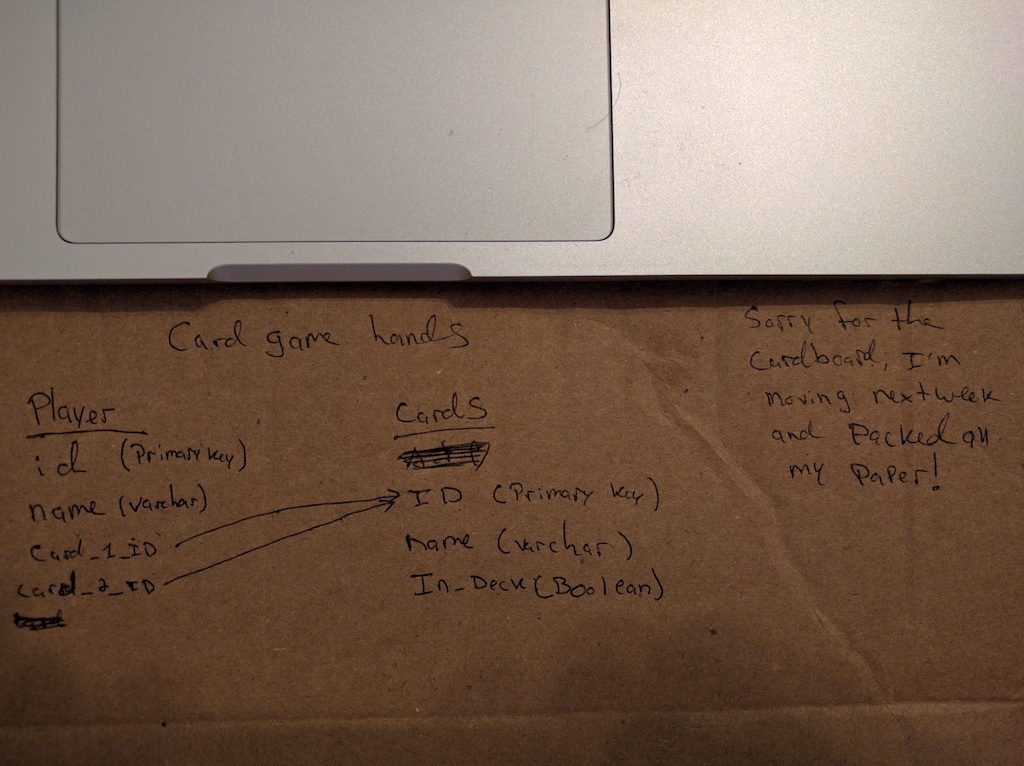 Card game hands
Player
id (Primary key)
name (varchar)
Card_1_ID
card_2_ID
Cards
ID (Primary key)
name (varchar)
In_Deck (Boolean)
Sorry for the
Cardboard, I'm
moving next week
and Packed all
my Paper!